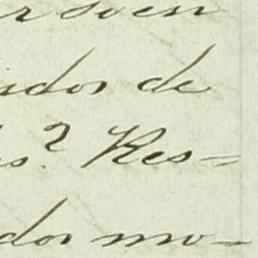 r soen
idos de
s? Res=
dos mo=